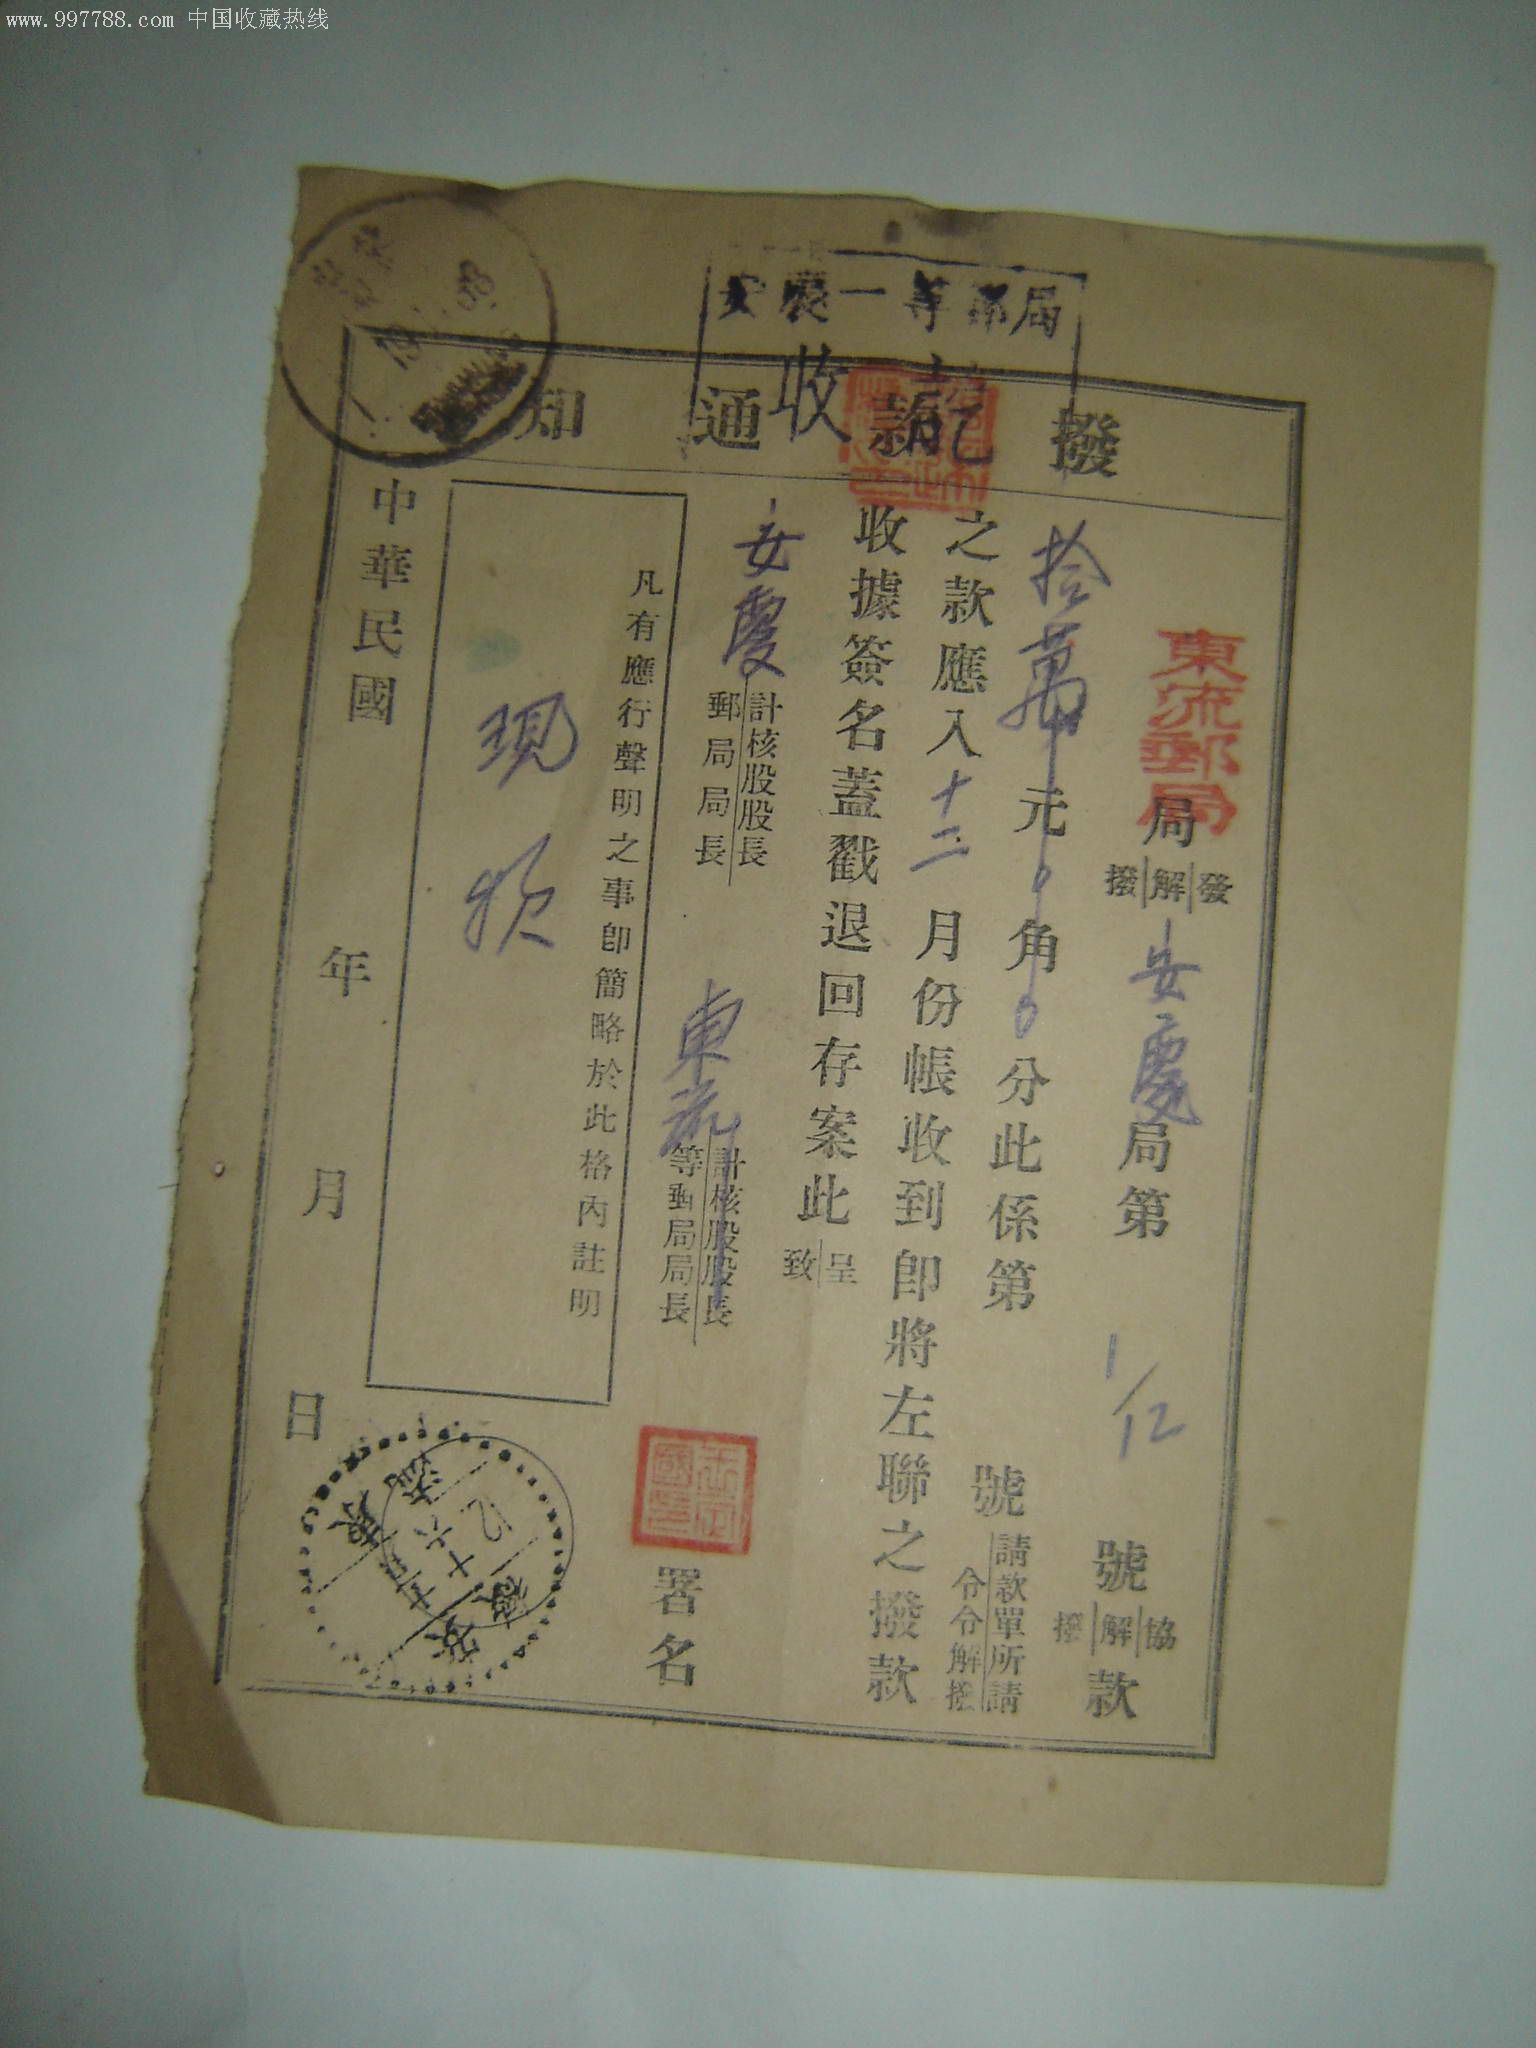 www.997788.com 中国收藏热线
安慶一等郵局
收訖
撥款通知
東流郵局
局 發解撥 安慶 局第 1/12 號 協解撥 款
拾萬元0角0分此係第 號 請款單所請 令令解撥
之款應入十二月份帳收到卽將左聯之撥款
收據簽名蓋戳退回存案此 呈致
安慶 計核股股長 郵局局長
東流 計核股股長 等郵局局長 署名
凡有應行聲明之事卽簡略於此格內註明
現
中華民國 年 月 日